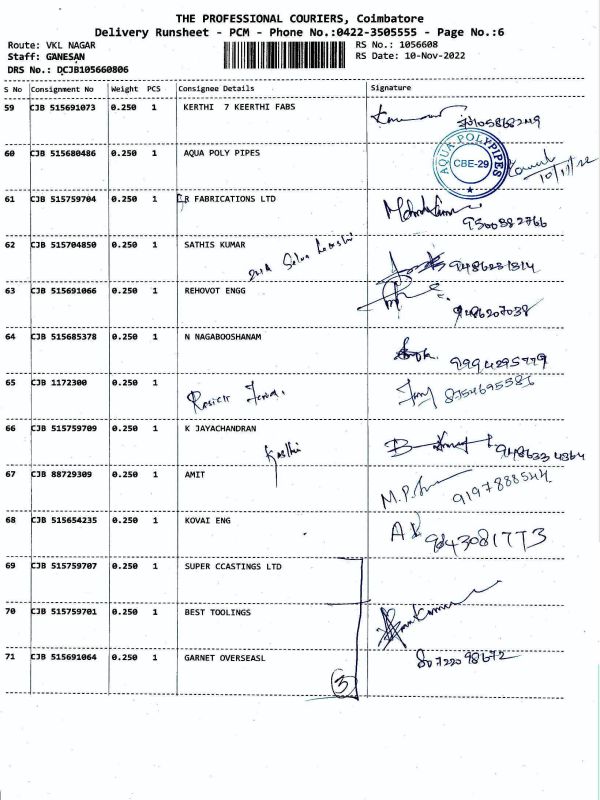 THE PROFESSIONAL COURIERS, Coimbatore
Delivery Runsheet - PCM - Phone No.:0422-3505555 - Page No.:6
Route: VKL NAGAR RS No.: 1056608
Staff: GANESAN RS Date: 10-Nov-2022
DRS No.: DCJB105660806
S No Consignment No Weight PCS Consignee Details Signature
59 CJB 515691073 0.250 1 KERTHI 7 KEERTHI FABS
60 CJB 515680486 0.250 1 AQUA POLY PIPES AQUA POLYPIPES CBE-29 10/11/22
61 CJB 515759704 0.250 1 CR FABRICATIONS LTD
9500882766
62 CJB 515704850 0.250 1 SATHIS KUMAR
9486231814
63 CJB 515691066 0.250 1 REHOVOT ENGG
9486207038
64 CJB 515685378 0.250 1 N NAGABOOSHANAM
9994295779
65 CJB 1172300 0.250 1
8754695581
66 CJB 515759709 0.250 1 K JAYACHANDRAN
9486334864
67 CJB 88729309 0.250 1 AMIT
M.P. 9197888544
68 CJB 515654235 0.250 1 KOVAI ENG
9843081773
69 CJB 515759707 0.250 1 SUPER CCASTINGS LTD
70 CJB 515759701 0.250 1 BEST TOOLINGS
71 CJB 515691064 0.250 1 GARNET OVERSEASL 8072298672
3